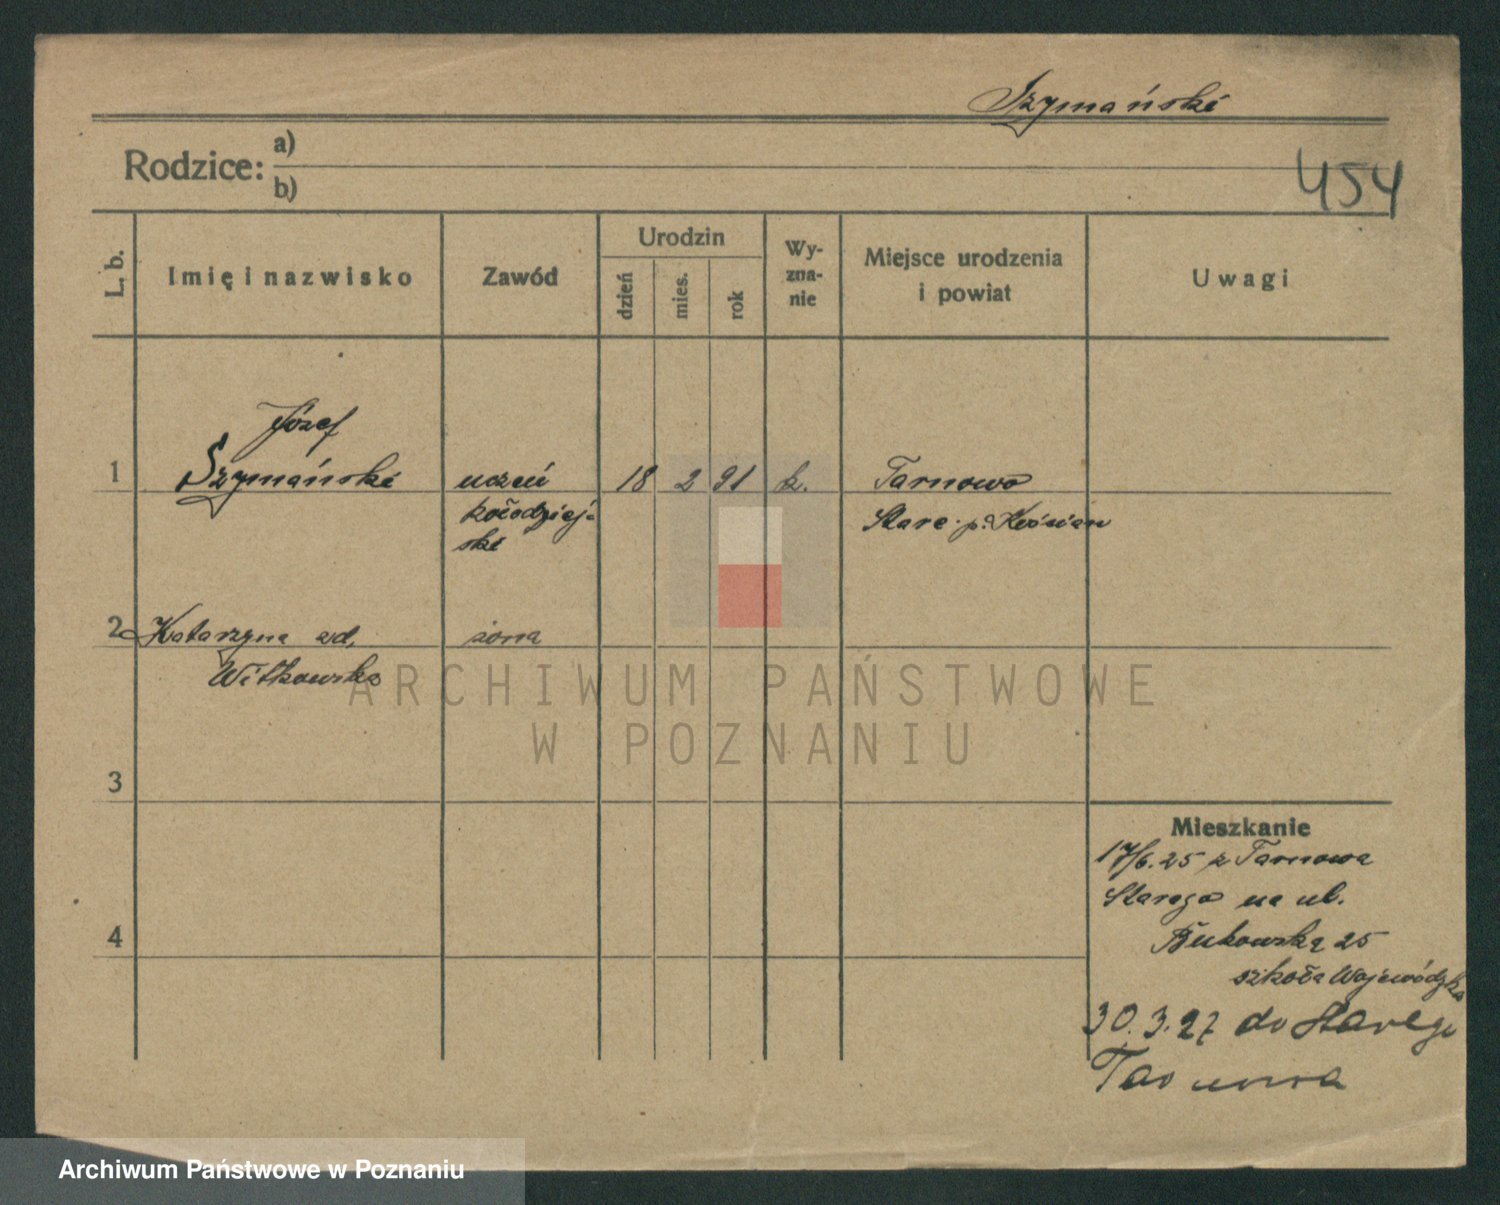 Szymański
Rodzice: a)
b)
454
L. b.
Imię i nazwisko
Zawód
Urodzin
dzień
mies.
rok
Wy-
zna-
nie
Miejsce urodzenia
i powiat
Uwagi
Józef
1 Szymański uczeń 18 2 91 k. Tarnowo
kołodziej- Stare p. Kościan
ski
2 Katarzyna zd. żona
Witkowska
ARCHIWUM PAŃSTWOWE
W POZNANIU
3
Mieszkanie
17/6.25 z Tarnowa
Starego na ul.
4
Bukowską 25
szkoła Wojewódzka
30.3.27 do Starego
Tarnowa
Archiwum Państwowe w Poznaniu